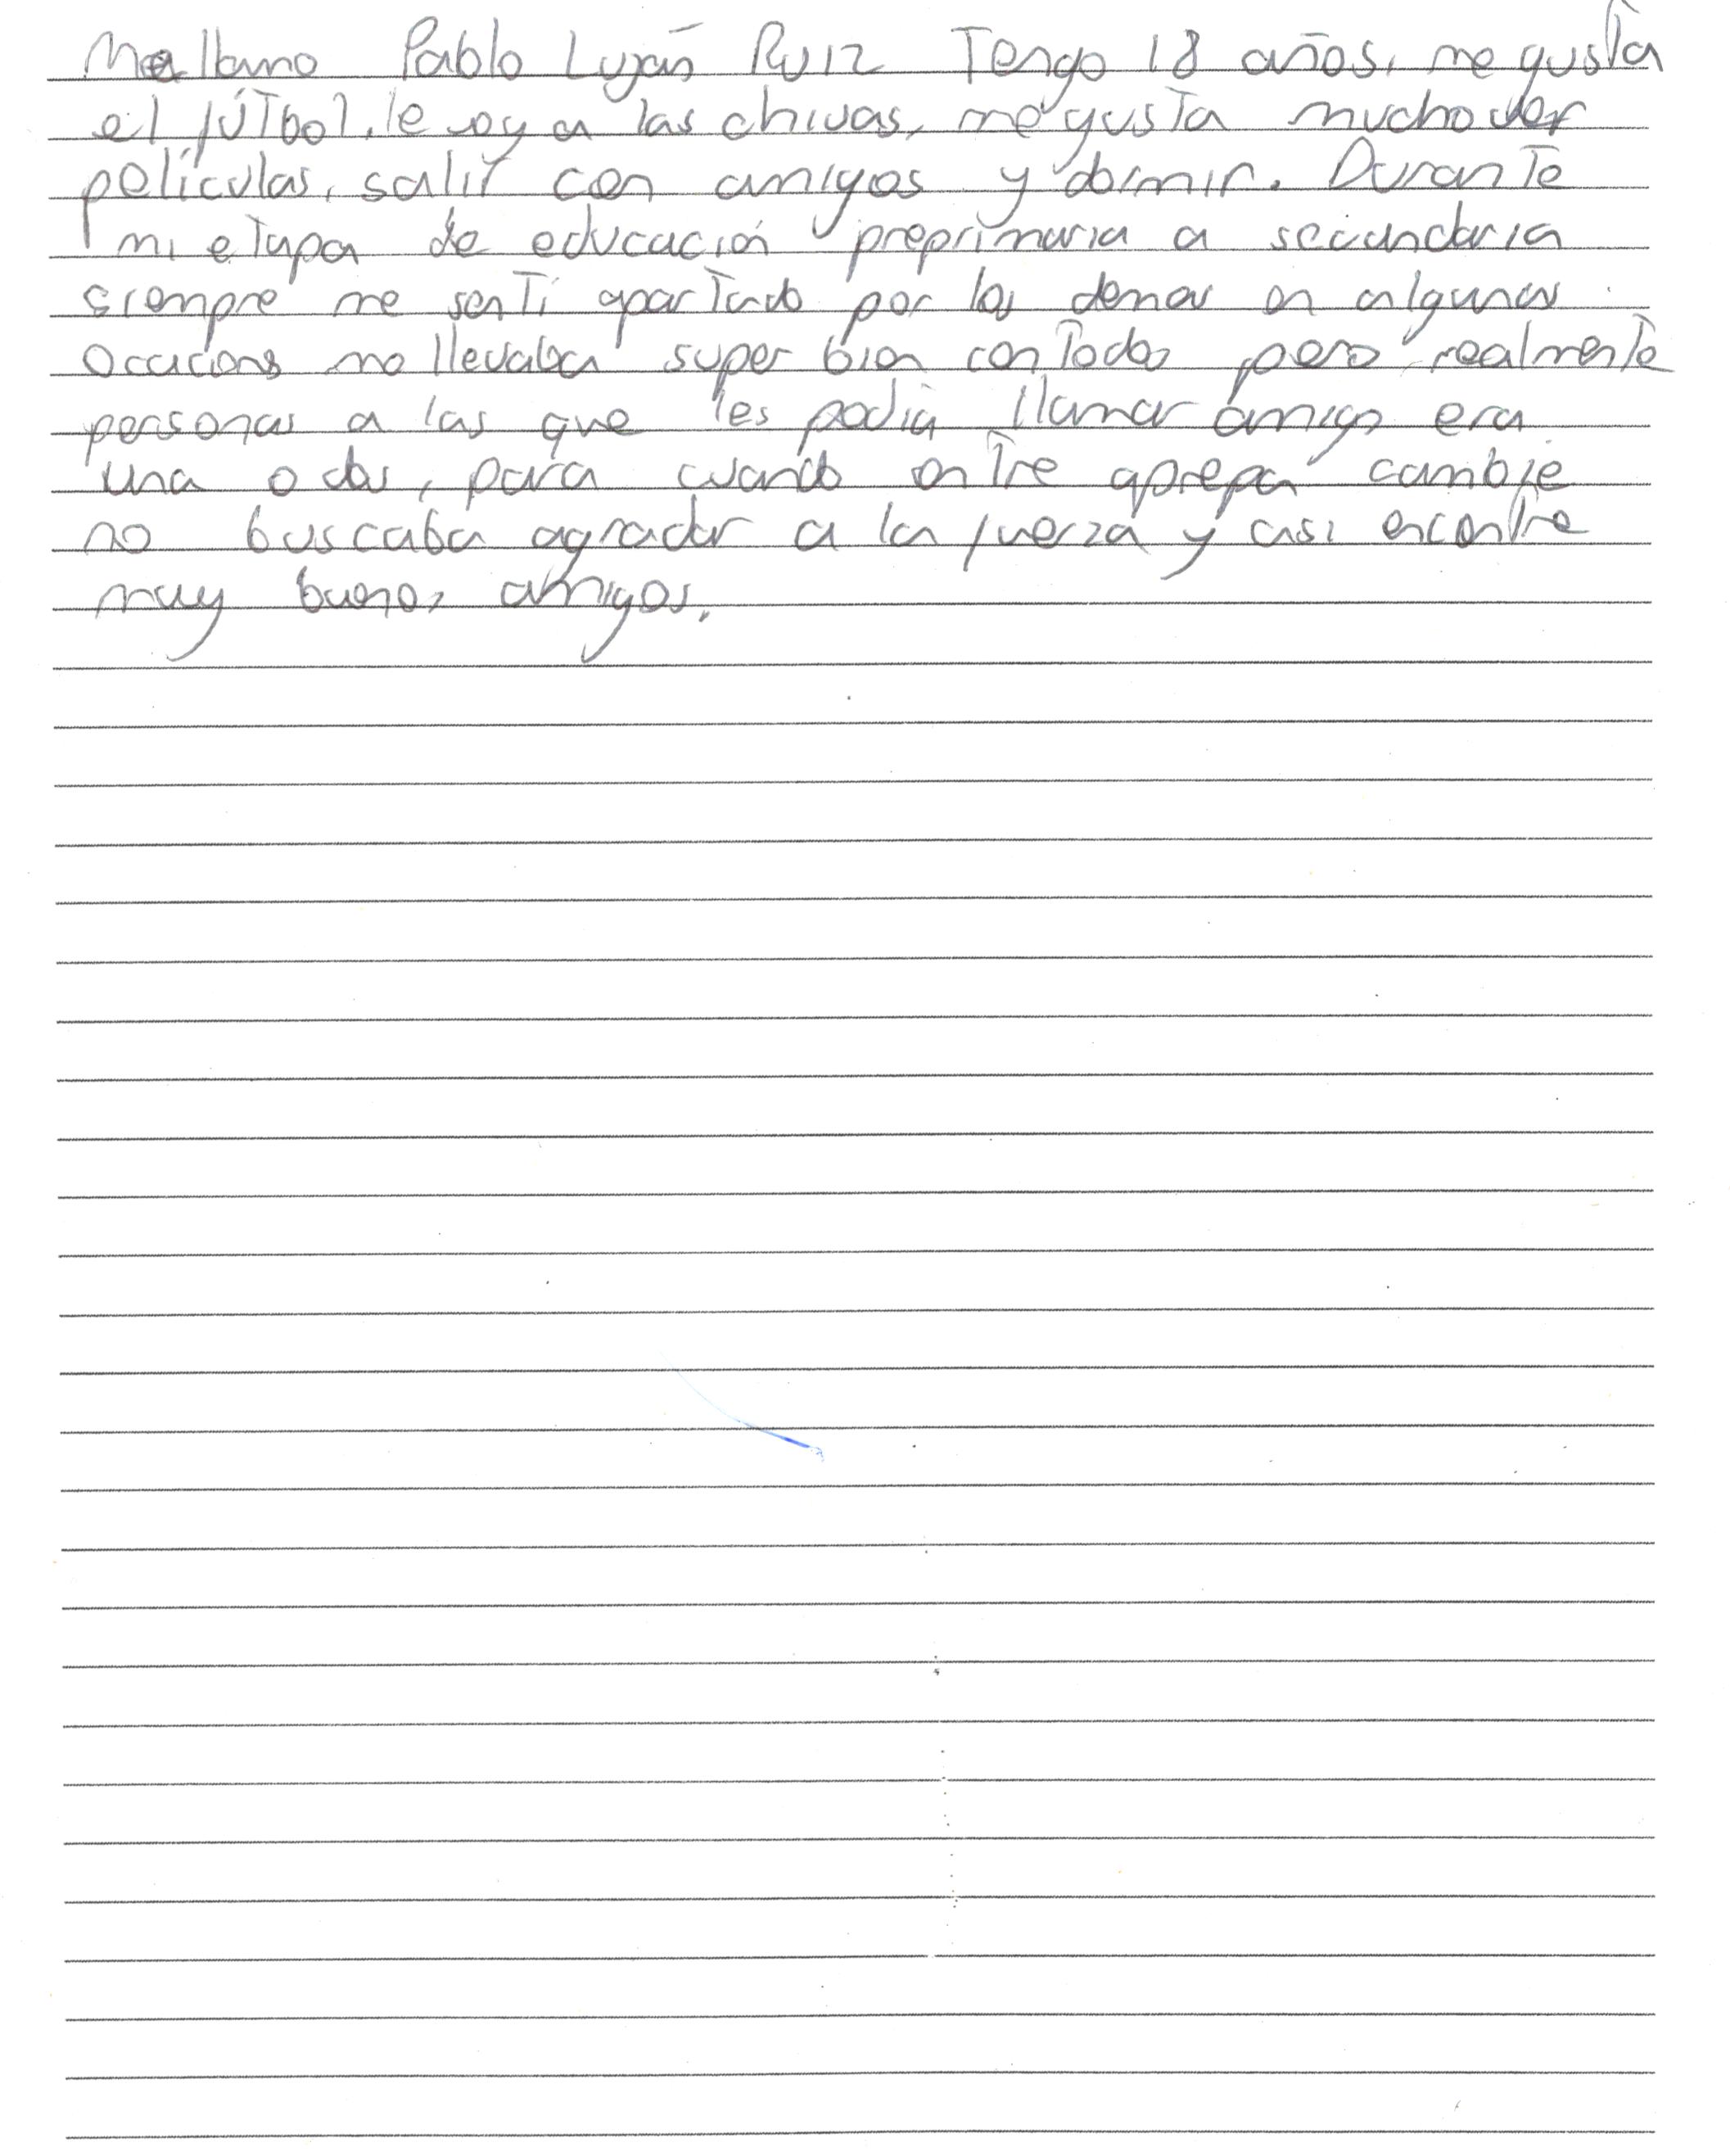 Me llamo Pablo Luján Ruiz Tengo 18 años, me gusta
el fútbol, le voy a las chivas, me gusta mucho ver
películas, salir con amigos y dormir. Durante
mi etapa de educación preprimaria a secundaria
siempre me sentí apartado por los demas en algunas
ocacions me llevaba super bien con Todos pero realmente
personas a las que les podia llamar amigo era
una o dos, para cuando entre a prepa cambie
no buscaba agradar a la fuerza y asi encontre
muy buenos amigos.